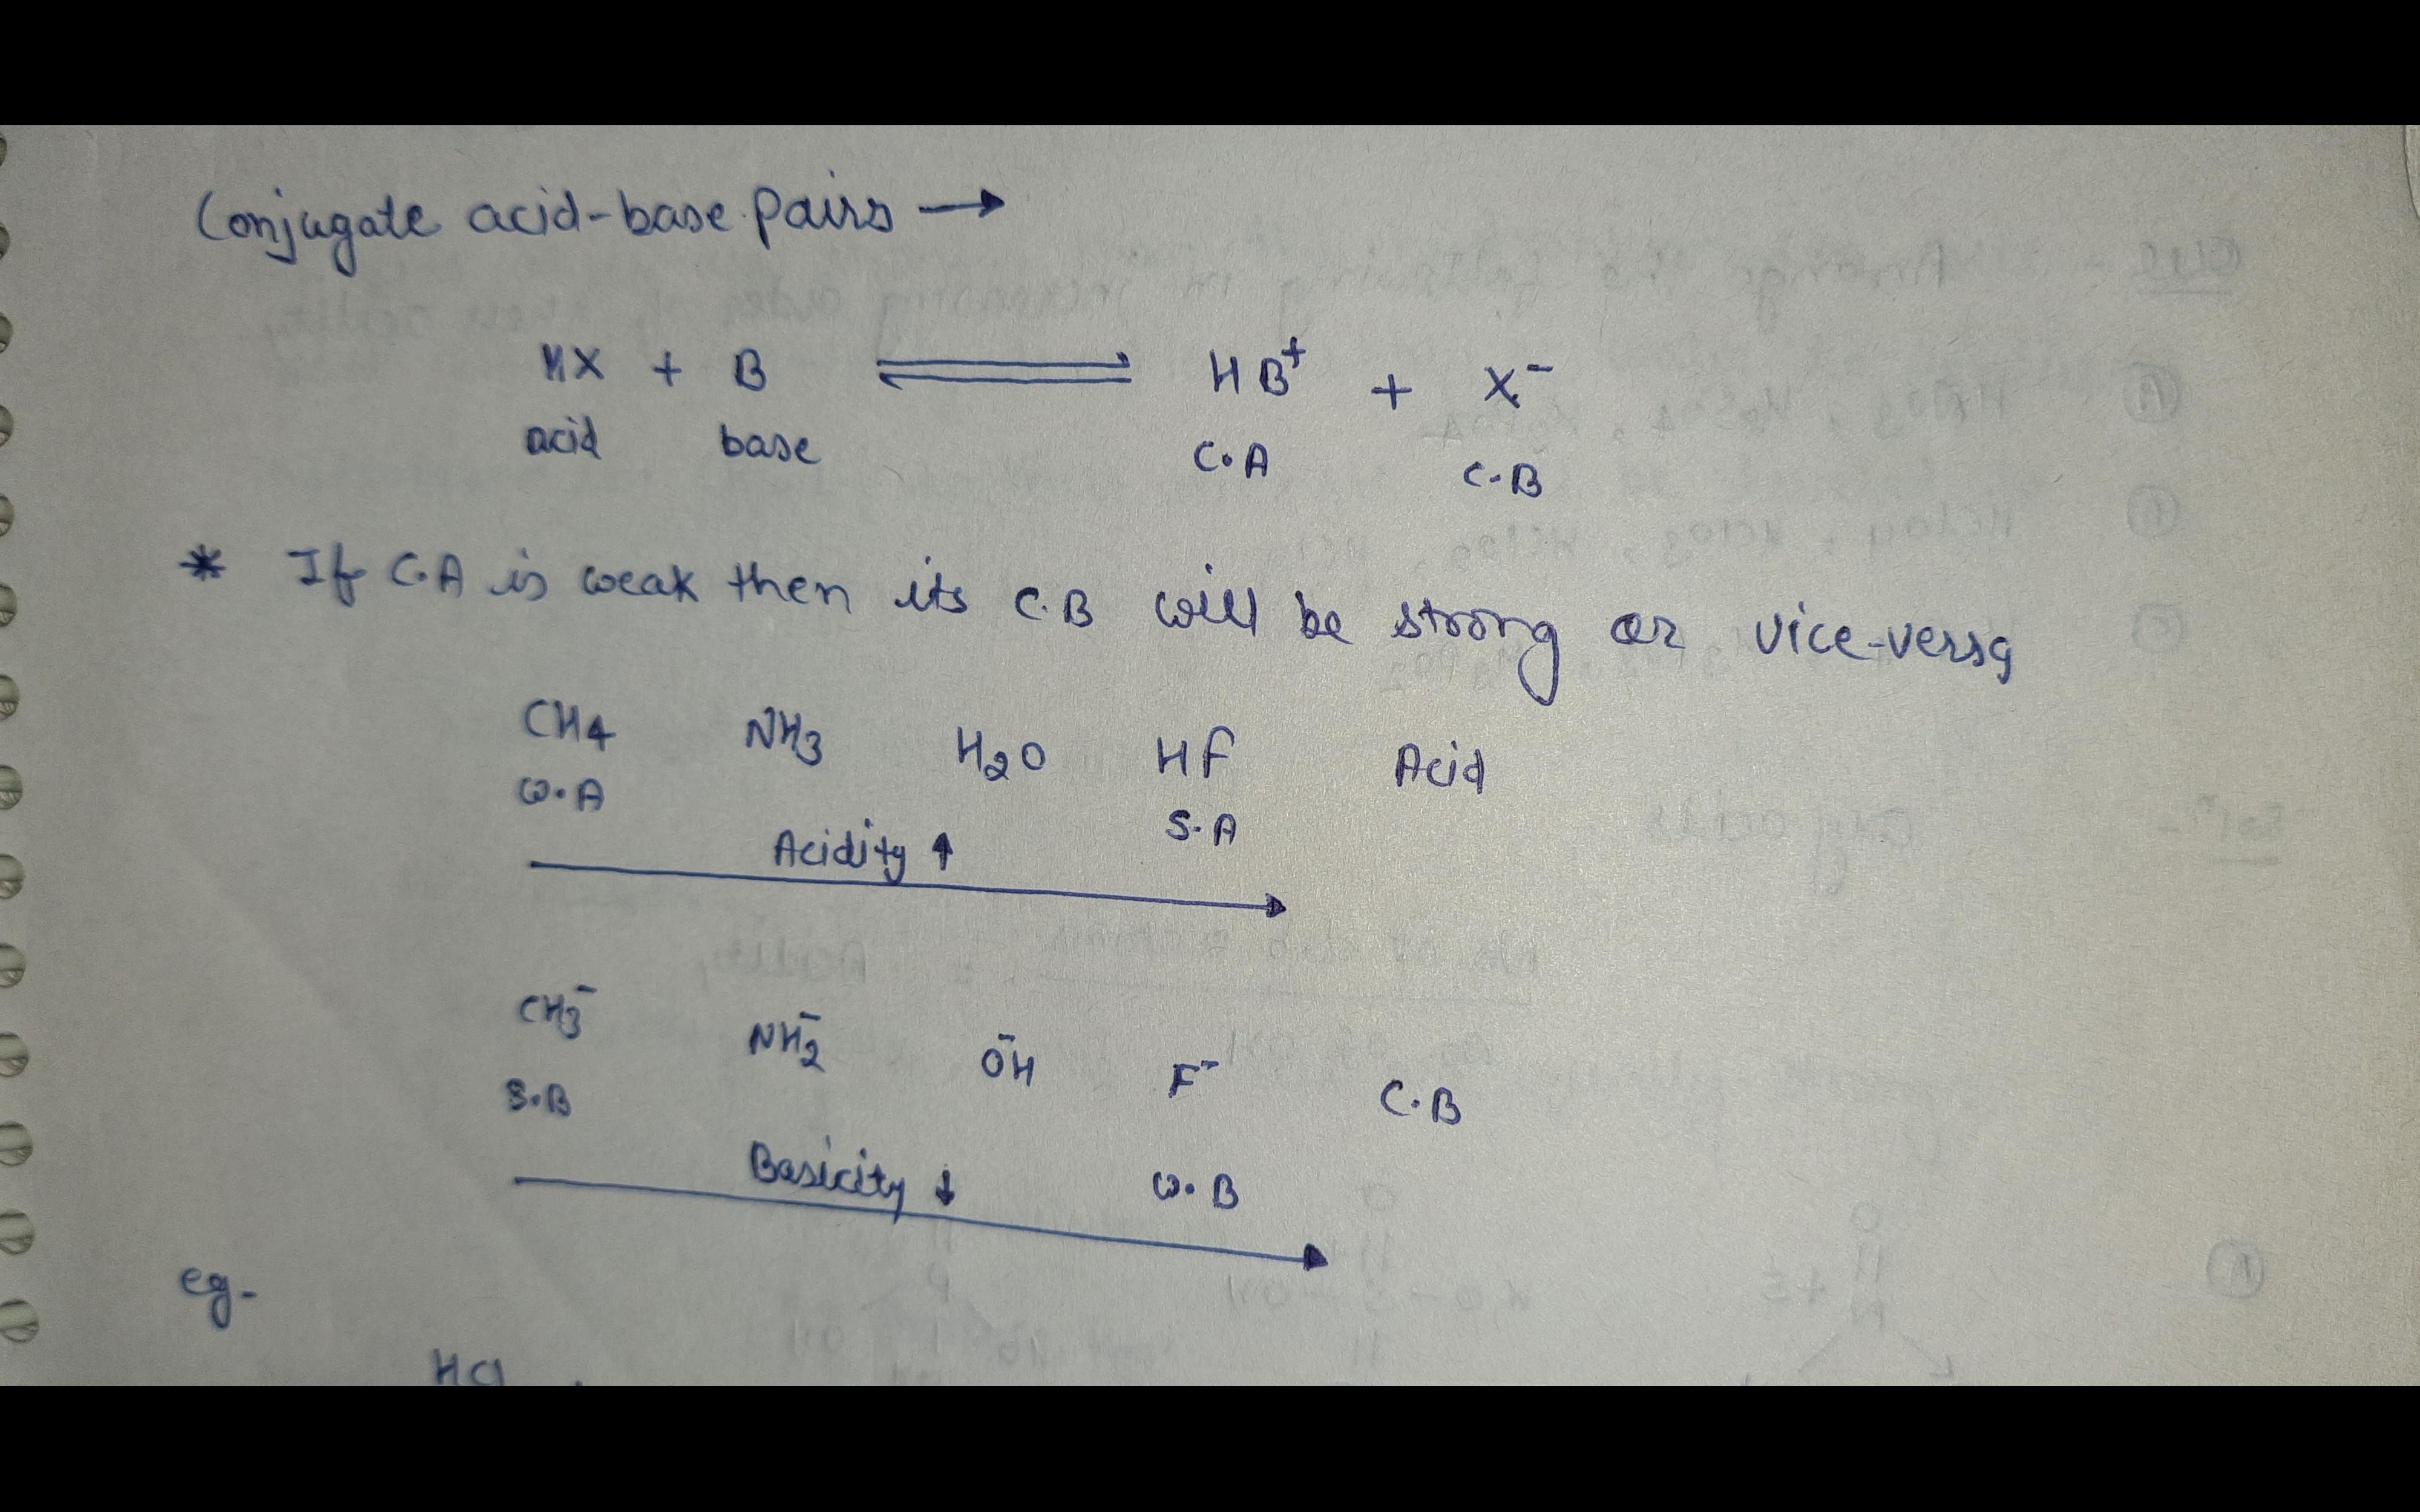 Conjugate acid-base pairs →
HX + B ⇌ HB⁺ + X⁻
acid base C.A C.B
* If C.A is weak then its C.B will be strong or vice-versa
CH4 NH3 H2O HF Acid
W.A S.A
Acidity ↑
CH3⁻ NH2⁻ O⁻H F⁻ C.B
S.B W.B
Basicity ↓
eg-